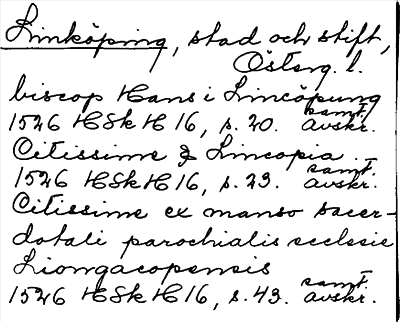 Linköping, stad och stift,
Österg. l.
biscop Hans i Limcöpung
1526 HSH H 16, s. 20. samt. avskr.
Citissime & Lincopia.
1526 HSH H 16, s. 23. samt. avskr.
Citissime ex manso sacer-
dotali parochialis ecclesie
Liongacopensis
1526 HSH H 16, s. 43. samt. avskr.